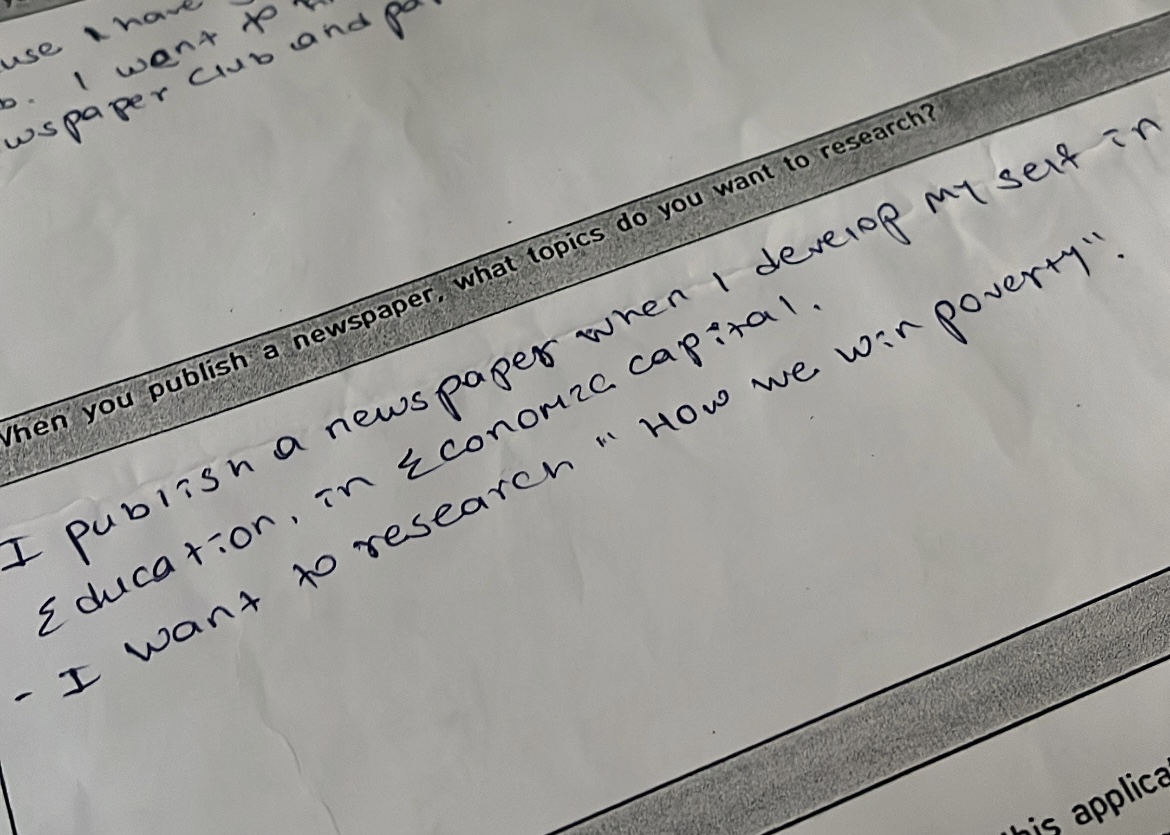 I have
I want to
wspaper club and
When you publish a newspaper, what topics do you want to research?
I publish a newspaper when I develop my self in
Education, in Economic capital.
- I want to research "How we win poverty".
this applica